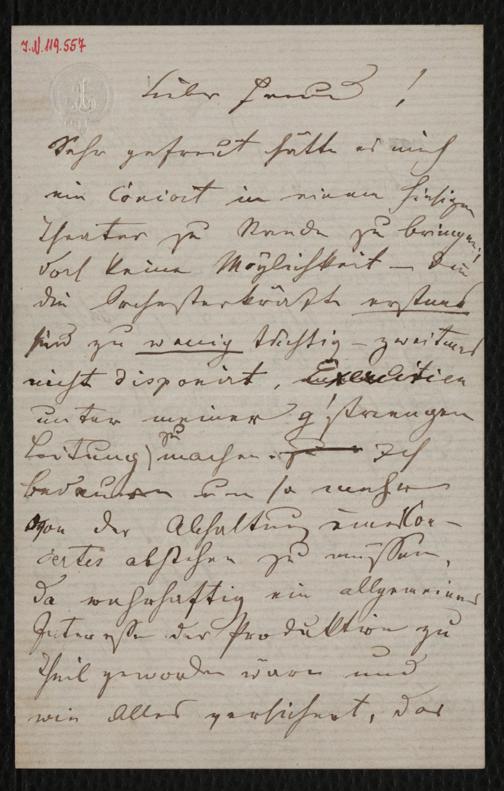 J.N. 119.557
Lieber Freund!
Sehr gefreut hätte es mich
ein Concert in einem hiesigen
Theater zu Stande zu bringen;
doch keine Möglichkeit – denn
die Orchesterkräfte erstens
sind zu wenig tüchtig – zweitens
nicht disponirt, Exerzitien
unter meiner g'strengen
Leitung) zu machen. Ich
bedaure um so mehr
von der Abhaltung eines Con-
certes abstehen zu müssen,
da wahrhaftig ein allgemeines
Interesse der Produktion zu
Theil geworden wäre und
wie Alles versichert, das